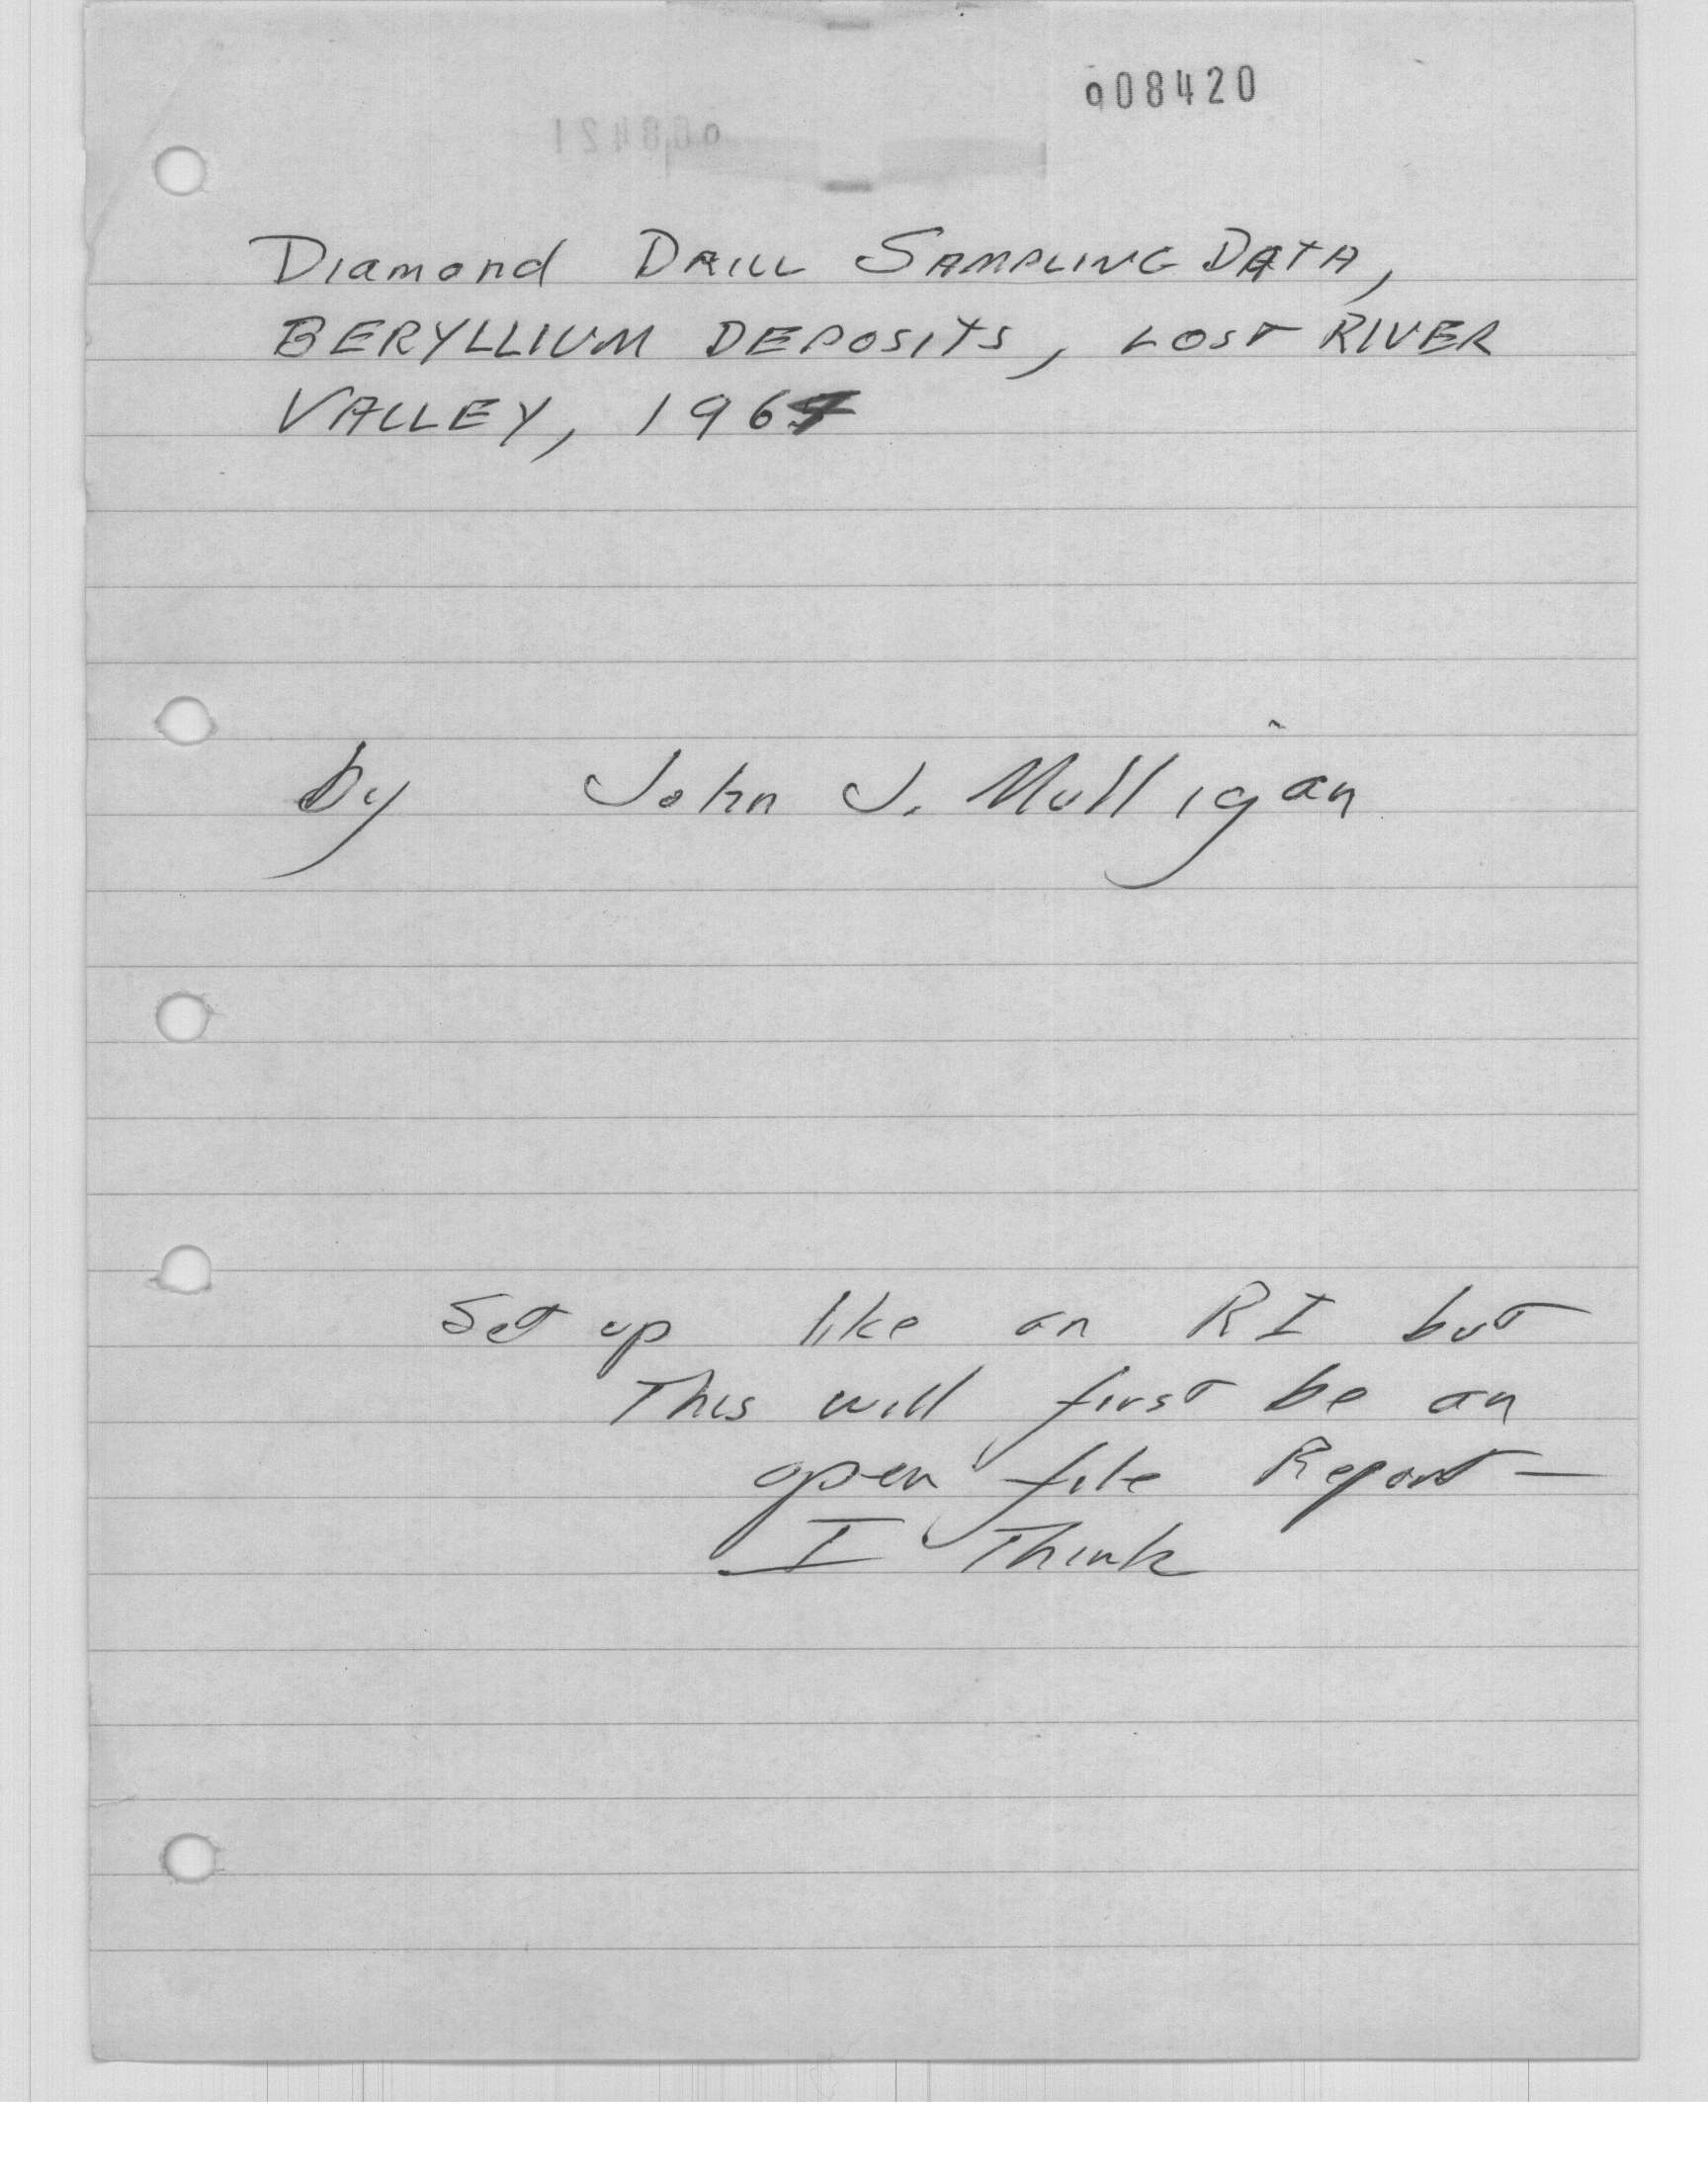 908420
Diamond DRILL SAMPLING DATA,
BERYLLIUM DEPOSITS, LOST RIVER
VALLEY, 1964
by John J. Mulligan
Set up like an RI but
This will first be an
open file Report —
I Think